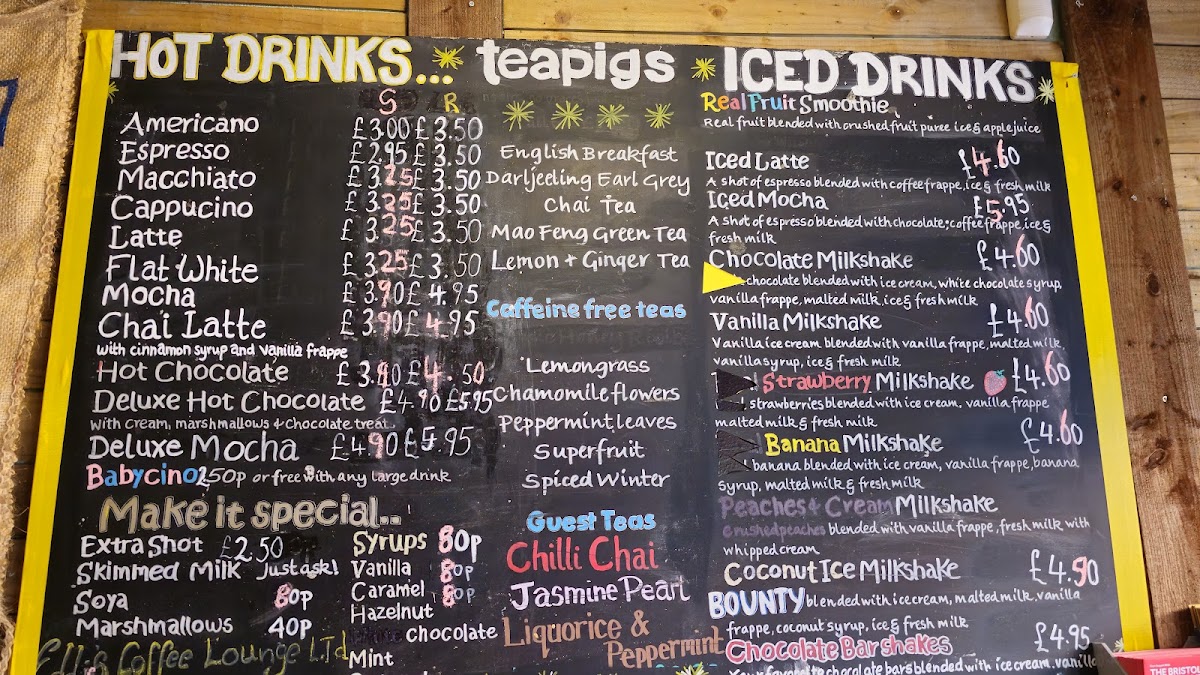 HOT DRINKS...
S R
Americano £3.00 £3.50
Espresso £2.95 £3.50
Macchiato £3.25 £3.50
Cappucino £3.25 £3.50
Latte £3.25 £3.50
Flat White £3.25 £3.50
Mocha £3.90 £4.95
Chai Latte £3.90 £4.95
with cinnamon syrup and vanilla frappe
Hot Chocolate £3.90 £4.50
Deluxe Hot Chocolate £4.90 £5.95
with cream, marshmallows & chocolate treat
Deluxe Mocha £4.90 £5.95
Babycino 250p or free with any large drink
Make it special..
Extra Shot £2.50
Skimmed Milk Just ask!
Soya 80p
Marshmallows 40p
Coffee Lounge LTd
Syrups 80p
Vanilla 80p
Caramel 80p
Hazelnut
chocolate
Mint
teapigs
English Breakfast
Darljeeling Earl Grey
Chai Tea
Mao Feng Green Tea
Lemon + Ginger Tea
Caffeine free teas
Lemongrass
Chamomile flowers
Peppermint leaves
Superfruit
Spiced Winter
Guest Teas
Chilli Chai
Jasmine Pearl
Liquorice &
Peppermint
ICED DRINKS
Real Fruit Smoothie
Real fruit blended with crushed fruit puree ice & apple juice
Iced Latte £4.60
A shot of espresso blended with coffee frappe, ice & fresh milk
Iced Mocha £5.95
A shot of espresso blended with chocolate, coffee frappe, ice &
fresh milk
Chocolate Milkshake £4.60
chocolate blended with ice cream, white chocolate syrup,
vanilla frappe, malted milk, ice & fresh milk
Vanilla Milkshake £4.60
Vanilla ice cream blended with vanilla frappe, malted milk,
vanilla syrup, ice & fresh milk
Strawberry Milkshake £4.60
strawberries blended with ice cream. vanilla frappe
malted milk & fresh milk
Banana Milkshake £4.60
banana blended with ice cream, vanilla frappe, banana
syrup, malted milk & fresh milk
Peaches & Cream Milkshake
crushed peaches blended with vanilla frappe, fresh milk with
whipped cream
Coconut Ice Milkshake £4.90
BOUNTY blended with ice cream, malted milk, vanilla
frappe, coconut syrup, ice & fresh milk
Chocolate Bar shakes £4.95
Your favourite chocolate bars blended with ice cream. vanilla
THE BRISTOL